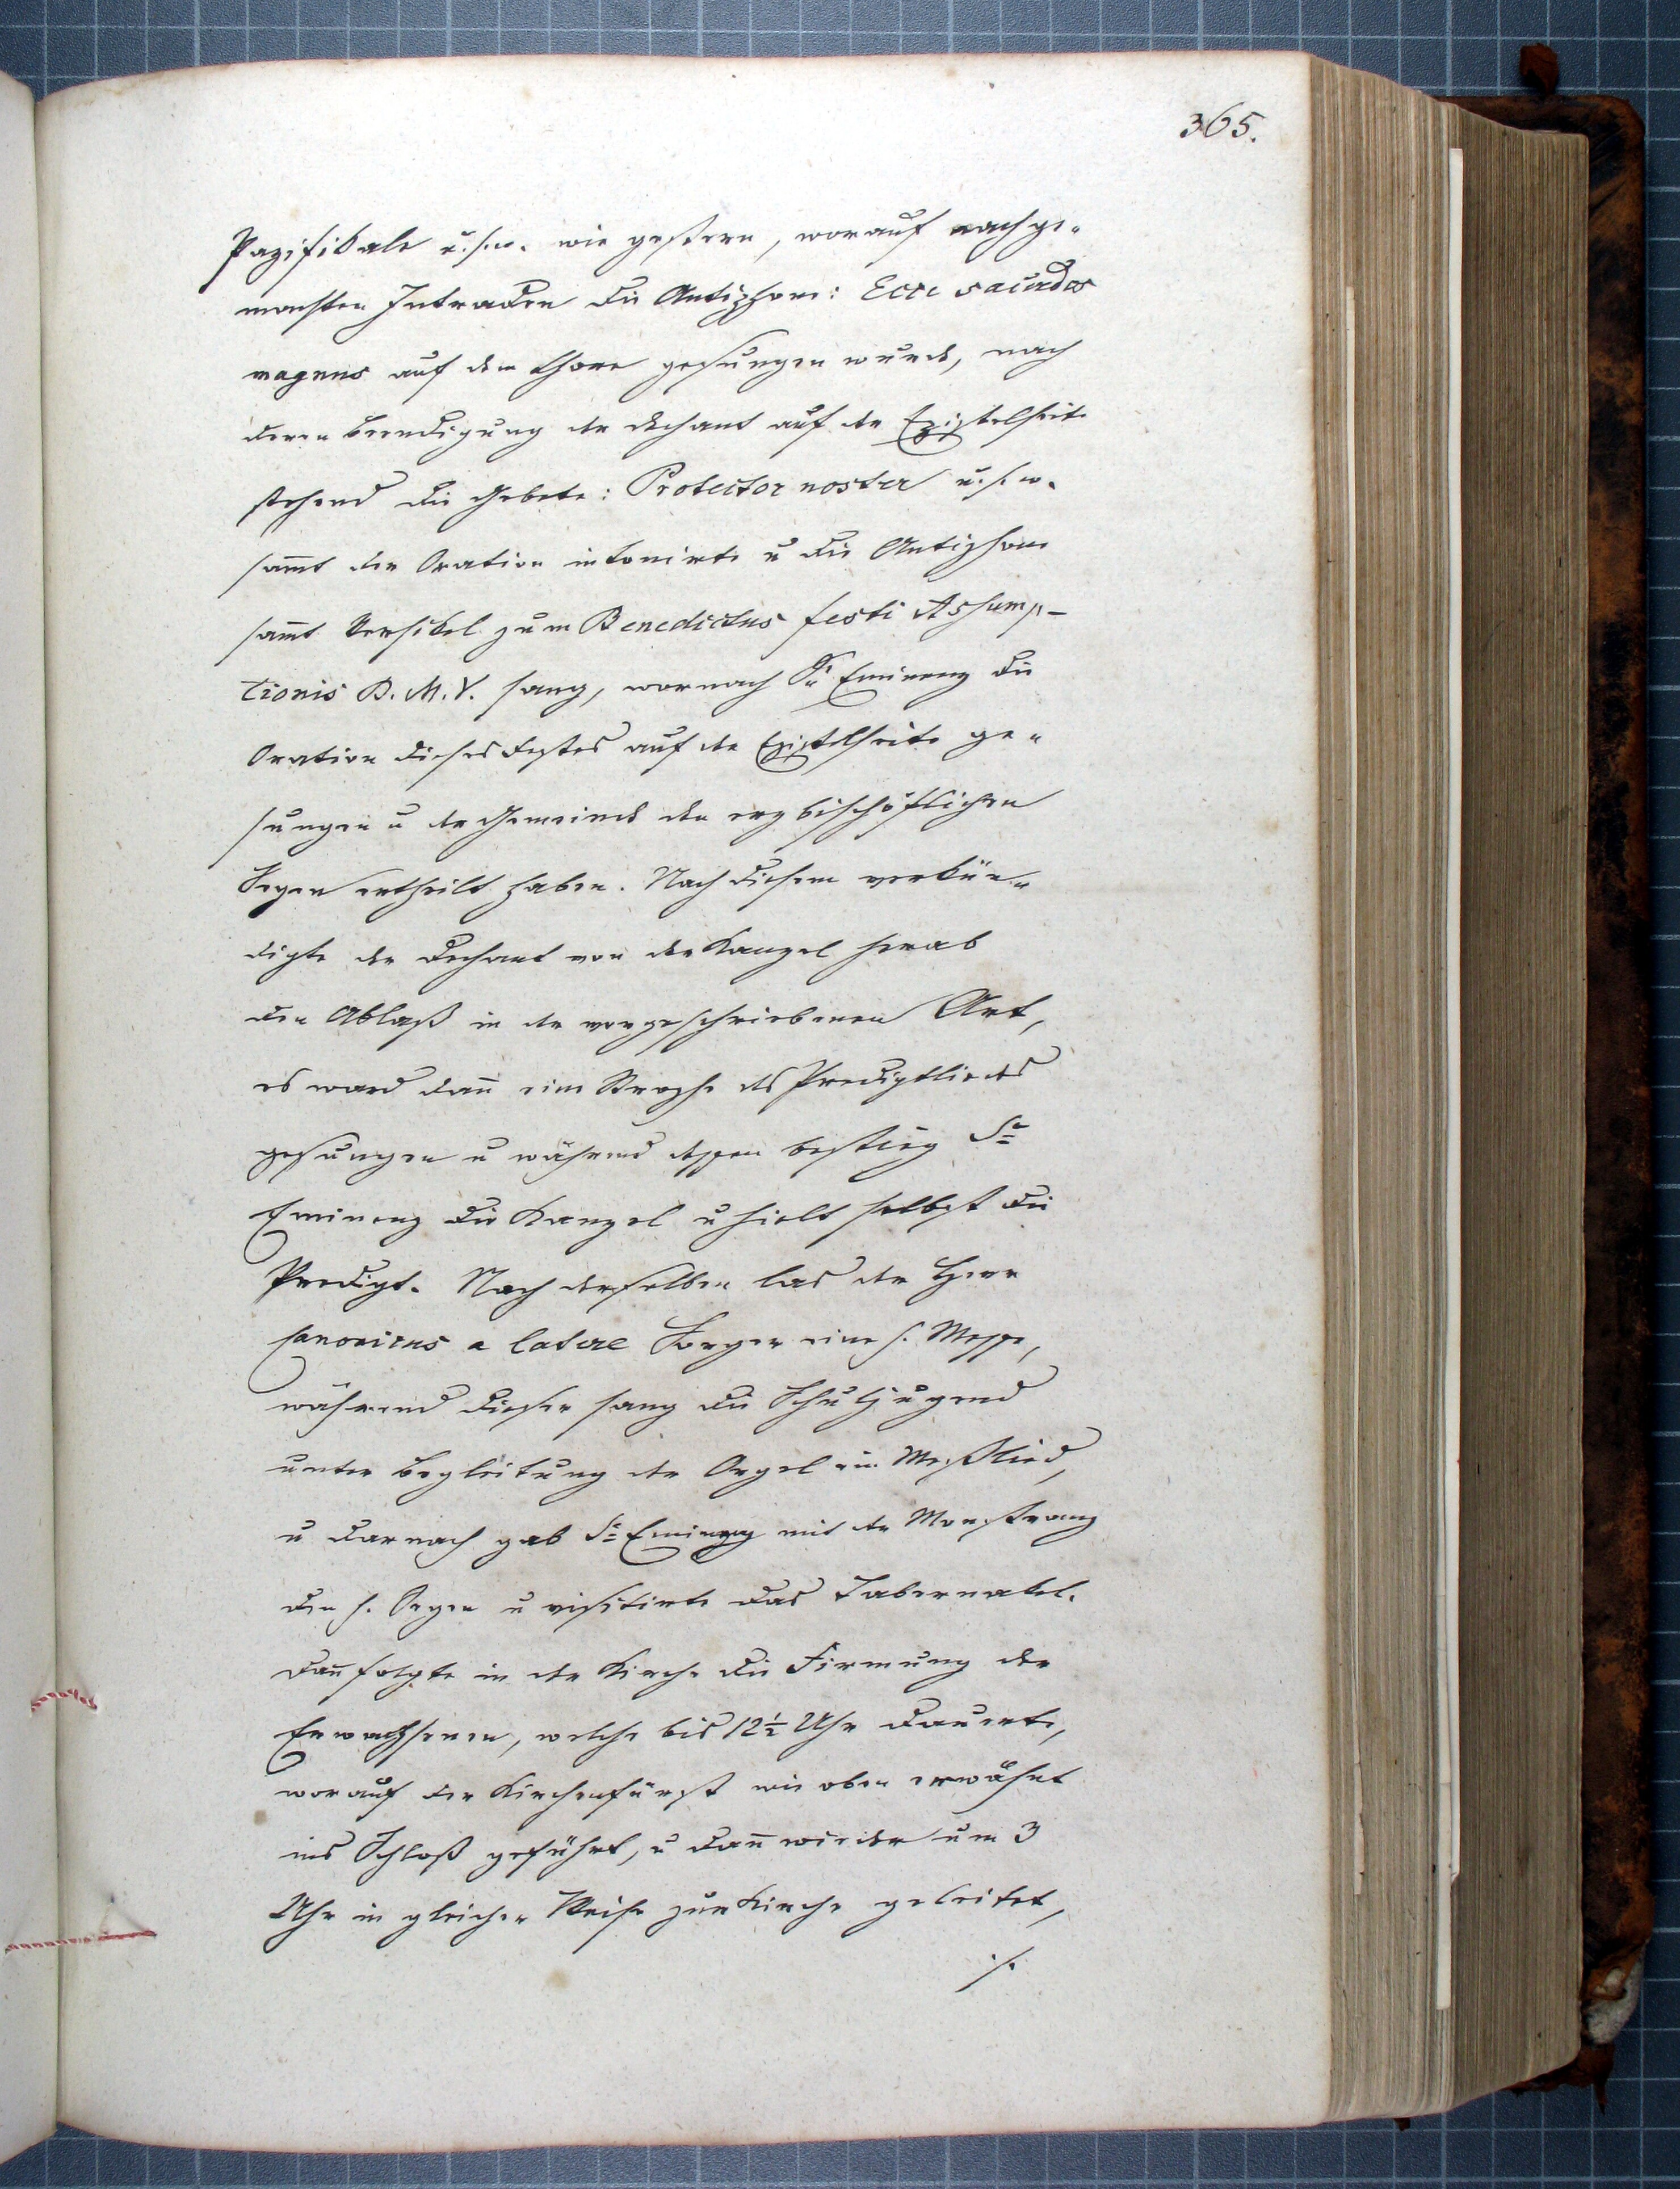 365.
Pazifikale u.s.w. wie gestern, worauf nach ge-
machten Intraden die Antiphone: Ecce sacerdos
magnus auf dem Chore gesungen wurde, nach
deren Beendigung der Dechant auf der Epistelseite
stehend die Gebete: Protector noster u.s.w.
sam̄t der Oration intonirte u die Antiphone
sam̄t Versikel zum Benedictus festi Assump-
tionis B. M. V. sang, wornach Se Eminenz die
Oration dieses Festes auf der Epistelseite ge-
sungen u der Gemeinde den erzbischöflichen
Segen ertheilt haben. Nach diesem verkün-
digte der Dechant von der Kanzel herab
den Ablaß in der vorgeschriebenen Art,
es ward dan̄ eine Strophe des Predigtliedes
gesungen u während dessen bestieg Se
Eminenz die Kanzel u hielt selbst die
Predigt. Nach derselben las der Herr
Canonicus a latere eine h. Messe,
während dieser sang die Schuljugend
unter Begleitung der Orgel ein Meßlied,
u darnach gab Se Eminenz mit der Monstranz
den h. Segen u visitirte das Tabernakel.
Dan̄ folgte in der Kirche die Firmung der
Erwachsenen, welche bis 12½ Uhr dauerte,
worauf der Kirchenfürst wie oben erwähnt
ins Schloß geführt, u dan̄ wieder um 3
Uhr in gleicher Weise zur Kirche geleitet,
./.